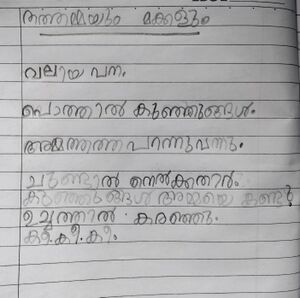 തത്തമ്മയും മക്കളും
വലിയ പന.
പൊത്തിൽ കുഞ്ഞുങ്ങൾ.
അമ്മത്തത്ത പറന്നു വന്നു.
ചുണ്ടിൽ നെൽക്കതിർ.
കുഞ്ഞുങ്ങൾ അമ്മയെ കണ്ടു
ഉച്ചത്തിൽ കരഞ്ഞു.
കീ. കീ. കീ.